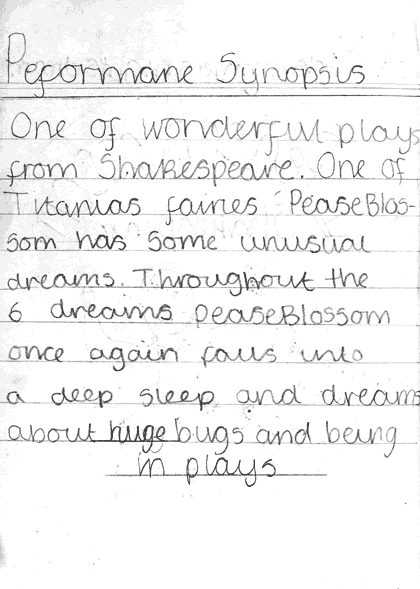 Peformane Synopsis
One of wonderful plays
from Shakespeare. One of
Titanias fairies PeaseBlos-
som has some unusual
dreams. Throughout the
6 dreams peaseBlossom
once again falls into
a deep sleep and dreams
about huge bugs and being
in plays